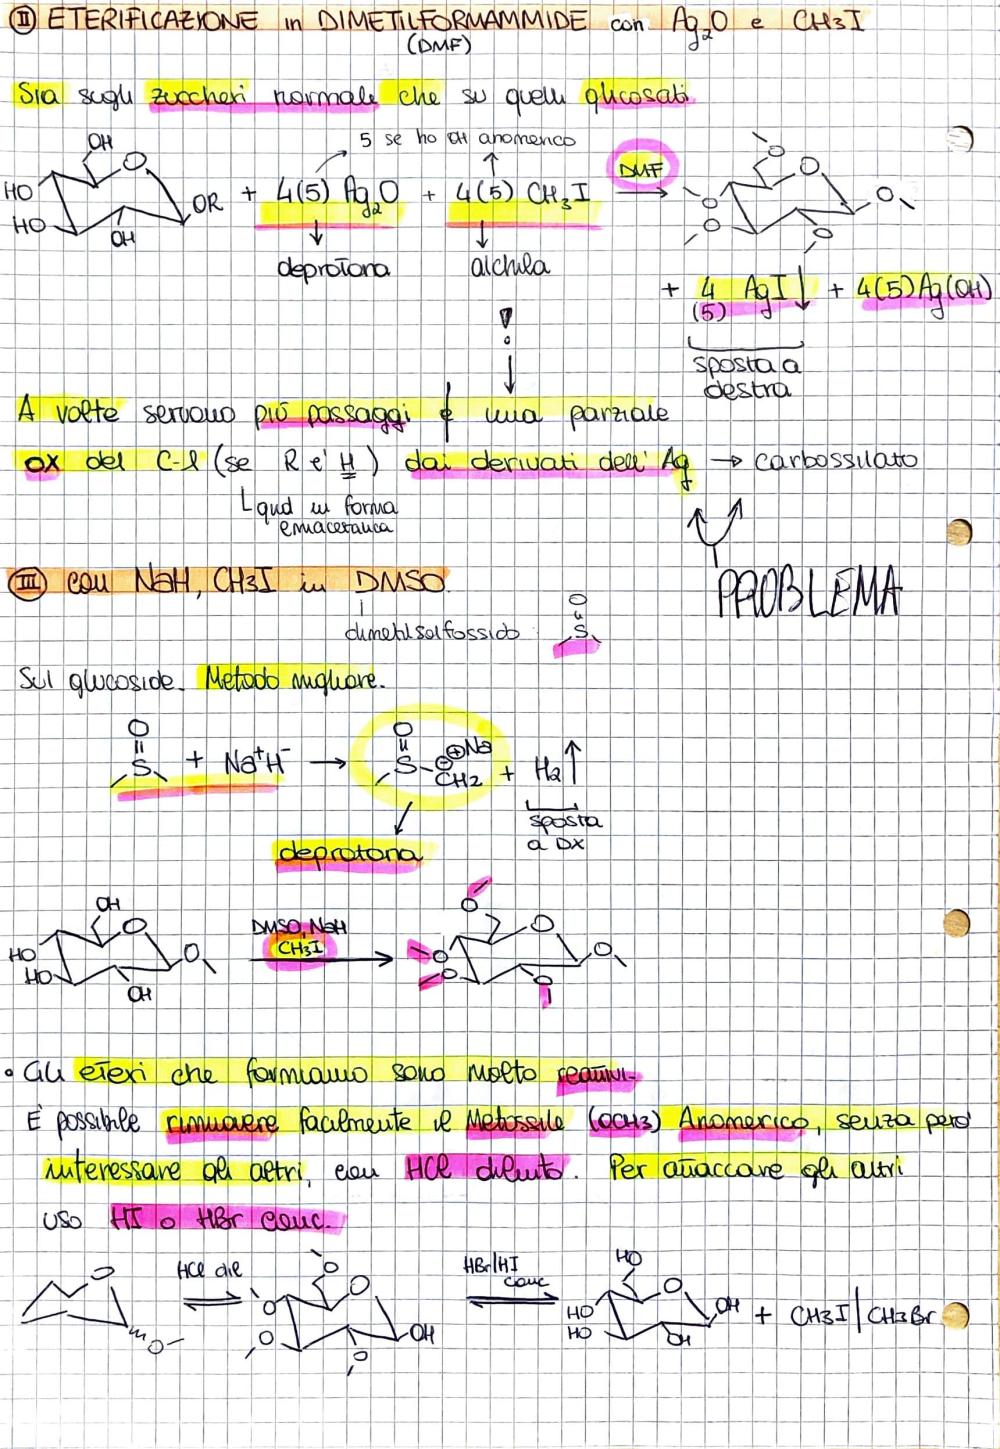 II ETERIFICAZIONE in DIMETILFORMAMMIDE con Ag2O e CH3I
(DMF)
Sia sugli zuccheri normale che su quelli glicosati
5 se ho OH anomerico
OH
HO
HO
OH
OR + 4(5) Ag2O + 4(5) CH3I
DMF
O
O
O
O
O
O
deprotona
alchila
+ 4 AgI↓ + 4(5)Ag(OH)
(5)
!
sposta a
destra
A volte servono più passaggi e una parziale
ox del C-1 (se R è H) dai derivati dell'Ag → carbossilato
qnd in forma
emiacetalica
PROBLEMA
III con NaH, CH3I in DMSO.
dimetilsolfossido
O
S
Sul glucoside. Metodo migliore.
O
S + Na+H- →
O
S-CH2 ⊖ ⊕Na + H2↑
sposta
a DX
deprotona
OH
O
HO
HO
OH
O
DMSO, NaH
CH3I
O
O
O
O
O
O
• Gli eteri che formiamo sono molto reattivi.
È possibile rimuovere facilmente il Metossile (OCH3) Anomerico, senza però
interessare gli altri, con HCl diluito. Per attaccare gli altri
uso HI o HBr conc.
O
O
HCl dil
O
O
O
O
O
OH
HBr/HI
conc
HO
O
HO
HO
OH
OH + CH3I/CH3Br